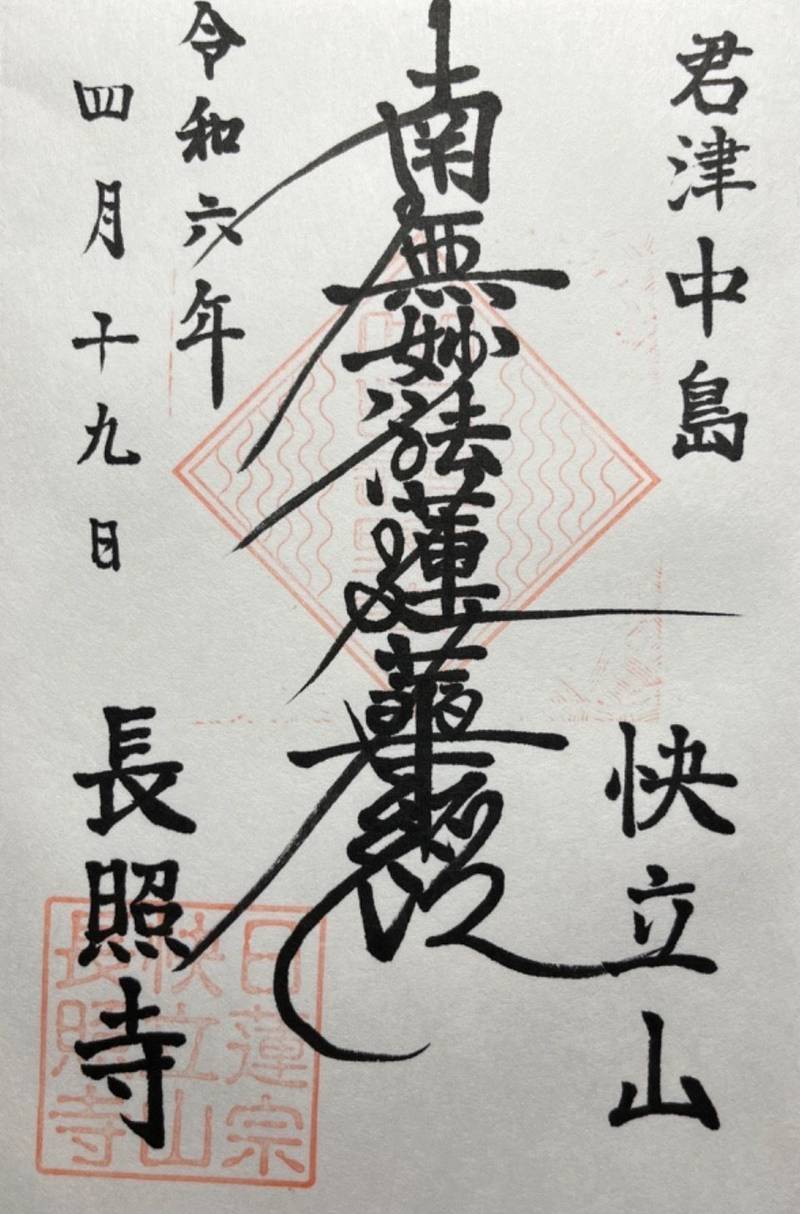 君津中島
快立山
南無妙法蓮華経
令和六年
四月十九日
長照寺
日蓮宗
快立山
長照寺